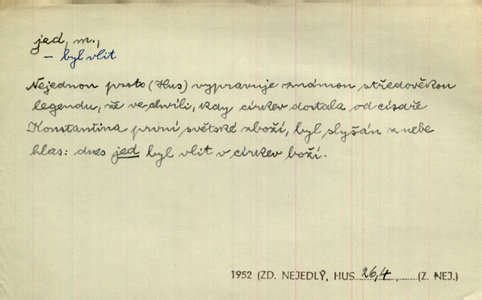 jed, m.,
– byl vlit
Nejednou proto (Hus) vypravuje známou středověkou
legendu, že ve chvíli, kdy církev dostala od císaře
Konstantina první světské zboží, byl slyšán z nebe
hlas: dnes jed byl vlit v církev boží.
1952 (ZD. NEJEDLÝ, HUS 26,4, (Z. NEJ.)